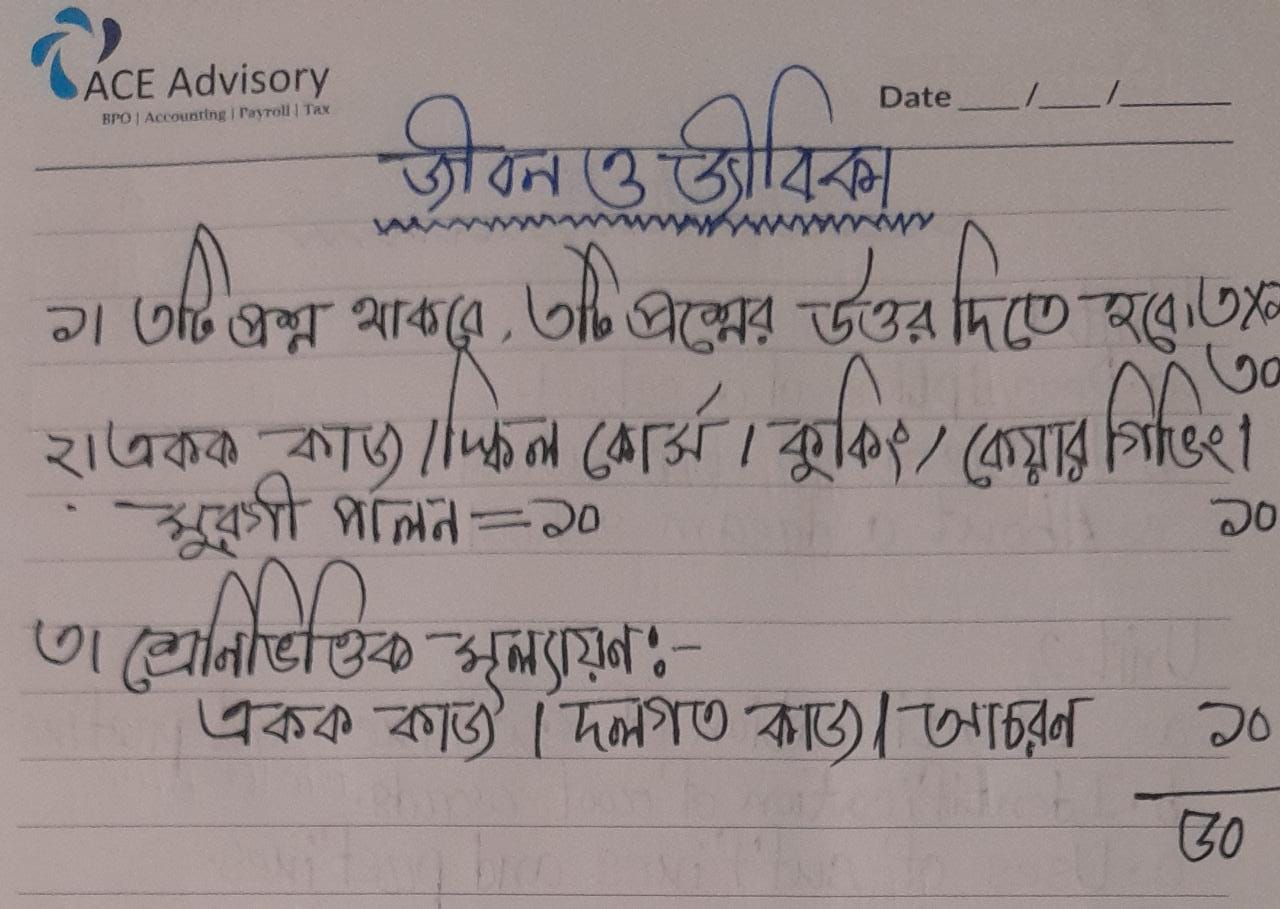 ACE Advisory
BPO | Accounting | Payroll | Tax
Date ___/___/______
জীবন ও জীবিকা
১। ৩টি প্রশ্ন থাকবে, ৩টি প্রশ্নের উত্তর দিতে হবে। ৩x
৩০
২। একক কাজ / স্কিল কোর্স / কুকিং / কেয়ার গিভিং।
মুরগী পালন = ১০ ১০
৩। শ্রেনিভিত্তিক মূল্যায়ন :-
একক কাজ / দলগত কাজ / আচরন ১০